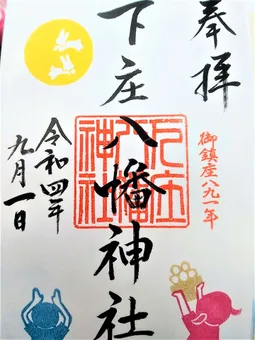 奉拝
御鎮座八九一年
下庄八幡神社
下庄八幡神社
令和四年
九月一日